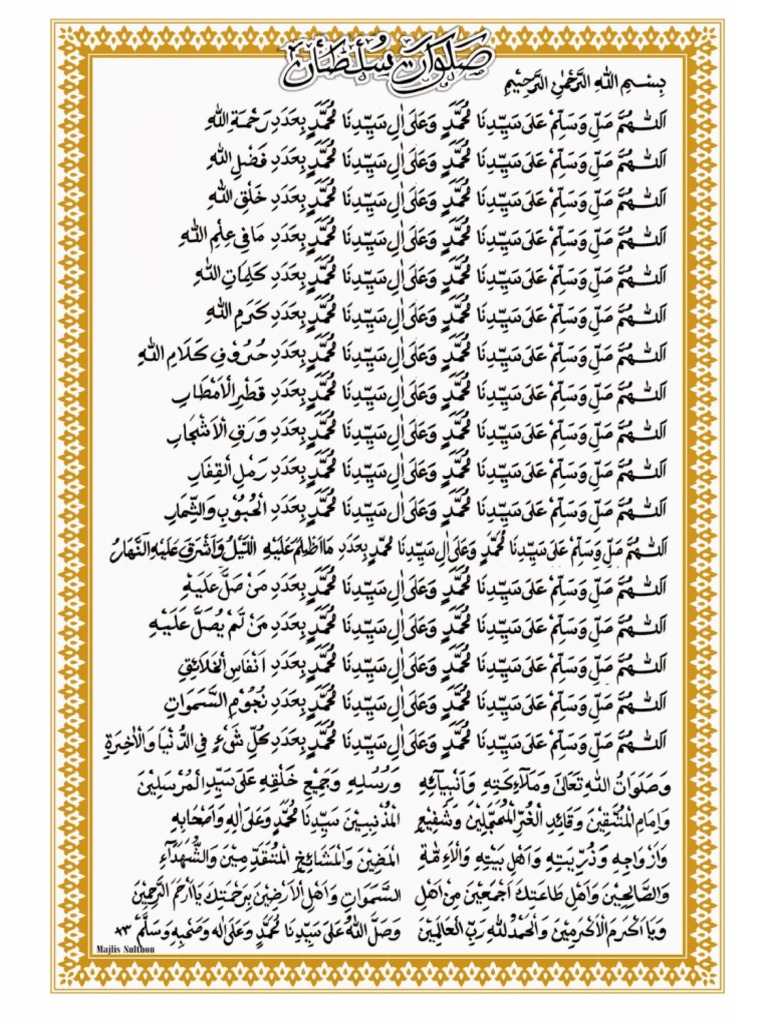 صَلَوَاتْ سُلْطَانْ
بِسْمِ اللهِ الرَّحْمٰنِ الرَّحِيْمِ
اَللّٰهُمَّ صَلِّ وَسَلِّمْ عَلَى سَيِّدِنَا مُحَمَّدٍ وَعَلَى اٰلِ سَيِّدِنَا مُحَمَّدٍ بِعَدَدِ رَحْمَةِ اللهِ
اَللّٰهُمَّ صَلِّ وَسَلِّمْ عَلَى سَيِّدِنَا مُحَمَّدٍ وَعَلَى اٰلِ سَيِّدِنَا مُحَمَّدٍ بِعَدَدِ فَضْلِ اللهِ
اَللّٰهُمَّ صَلِّ وَسَلِّمْ عَلَى سَيِّدِنَا مُحَمَّدٍ وَعَلَى اٰلِ سَيِّدِنَا مُحَمَّدٍ بِعَدَدِ خَلْقِ اللهِ
اَللّٰهُمَّ صَلِّ وَسَلِّمْ عَلَى سَيِّدِنَا مُحَمَّدٍ وَعَلَى اٰلِ سَيِّدِنَا مُحَمَّدٍ بِعَدَدِ مَا فِي عِلْمِ اللهِ
اَللّٰهُمَّ صَلِّ وَسَلِّمْ عَلَى سَيِّدِنَا مُحَمَّدٍ وَعَلَى اٰلِ سَيِّدِنَا مُحَمَّدٍ بِعَدَدِ كَلِمَاتِ اللهِ
اَللّٰهُمَّ صَلِّ وَسَلِّمْ عَلَى سَيِّدِنَا مُحَمَّدٍ وَعَلَى اٰلِ سَيِّدِنَا مُحَمَّدٍ بِعَدَدِ كَرَمِ اللهِ
اَللّٰهُمَّ صَلِّ وَسَلِّمْ عَلَى سَيِّدِنَا مُحَمَّدٍ وَعَلَى اٰلِ سَيِّدِنَا مُحَمَّدٍ بِعَدَدِ حُرُوْفِ كَلَامِ اللهِ
اَللّٰهُمَّ صَلِّ وَسَلِّمْ عَلَى سَيِّدِنَا مُحَمَّدٍ وَعَلَى اٰلِ سَيِّدِنَا مُحَمَّدٍ بِعَدَدِ قَطْرِ الْاَمْطَارِ
اَللّٰهُمَّ صَلِّ وَسَلِّمْ عَلَى سَيِّدِنَا مُحَمَّدٍ وَعَلَى اٰلِ سَيِّدِنَا مُحَمَّدٍ بِعَدَدِ وَرَقِ الْاَشْجَارِ
اَللّٰهُمَّ صَلِّ وَسَلِّمْ عَلَى سَيِّدِنَا مُحَمَّدٍ وَعَلَى اٰلِ سَيِّدِنَا مُحَمَّدٍ بِعَدَدِ رَمْلِ الْقِفَارِ
اَللّٰهُمَّ صَلِّ وَسَلِّمْ عَلَى سَيِّدِنَا مُحَمَّدٍ وَعَلَى اٰلِ سَيِّدِنَا مُحَمَّدٍ بِعَدَدِ الْحُبُوْبِ وَالثِّمَارِ
اَللّٰهُمَّ صَلِّ وَسَلِّمْ عَلَى سَيِّدِنَا مُحَمَّدٍ وَعَلَى اٰلِ سَيِّدِنَا مُحَمَّدٍ بِعَدَدِ مَا اَظْلَمَ عَلَيْهِ اللَّيْلُ وَاَشْرَقَ عَلَيْهِ النَّهَارُ
اَللّٰهُمَّ صَلِّ وَسَلِّمْ عَلَى سَيِّدِنَا مُحَمَّدٍ وَعَلَى اٰلِ سَيِّدِنَا مُحَمَّدٍ بِعَدَدِ مَنْ صَلَّ عَلَيْهِ
اَللّٰهُمَّ صَلِّ وَسَلِّمْ عَلَى سَيِّدِنَا مُحَمَّدٍ وَعَلَى اٰلِ سَيِّدِنَا مُحَمَّدٍ بِعَدَدِ مَنْ لَمْ يُصَلِّ عَلَيْهِ
اَللّٰهُمَّ صَلِّ وَسَلِّمْ عَلَى سَيِّدِنَا مُحَمَّدٍ وَعَلَى اٰلِ سَيِّدِنَا مُحَمَّدٍ بِعَدَدِ اَنْفَاسِ الْخَلَائِقِ
اَللّٰهُمَّ صَلِّ وَسَلِّمْ عَلَى سَيِّدِنَا مُحَمَّدٍ وَعَلَى اٰلِ سَيِّدِنَا مُحَمَّدٍ بِعَدَدِ نُجُوْمِ السَّمَوَاتِ
اَللّٰهُمَّ صَلِّ وَسَلِّمْ عَلَى سَيِّدِنَا مُحَمَّدٍ وَعَلَى اٰلِ سَيِّدِنَا مُحَمَّدٍ بِعَدَدِ كُلِّ شَيْءٍ فِي الدُّنْيَا وَالْاٰخِرَةِ
وَصَلَوَاتُ اللهِ تَعَالَى وَمَلَآئِكَتِهِ وَاَنْبِيَآئِهِ وَرُسُلِهِ وَجَمِيْعِ خَلْقِهِ عَلَى سَيِّدِ الْمُرْسَلِيْنَ
وَاِمَامِ الْمُتَّقِيْنَ وَقَائِدِ الْغُرِّ الْمُحَجَّلِيْنَ وَشَفِيْعِ الْمُذْنِبِيْنَ سَيِّدِنَا مُحَمَّدٍ وَعَلَى اٰلِهِ وَاَصْحَابِهِ
وَاَزْوَاجِهِ وَذُرِّيَتِهِ وَاَهْلِ بَيْتِهِ وَالْاَئِمَّةِ الْمَاضِيْنَ وَالْمَشَائِخِ الْمُتَقَدِّمِيْنَ وَالشُّهَدَآءِ
وَالصَّالِحِيْنَ وَاَهْلِ طَاعَتِكَ اَجْمَعِيْنَ مِنْ اَهْلِ السَّمَوَاتِ وَاَهْلِ الْاَرَضِيْنَ بِرَحْمَتِكَ يَا اَرْحَمَ الرَّحِمِيْنَ
وَيَا اَكْرَمَ الْاَكْرَمِيْنَ وَالْحَمْدُ لِلّٰهِ رَبِّ الْعَالَمِيْنَ وَصَلَّ اللهُ عَلَى سَيِّدِنَا مُحَمَّدٍ وَعَلَى اٰلِهِ وَصَحْبِهِ وَسَلَّمَ ×٣
Majlis Sulthon